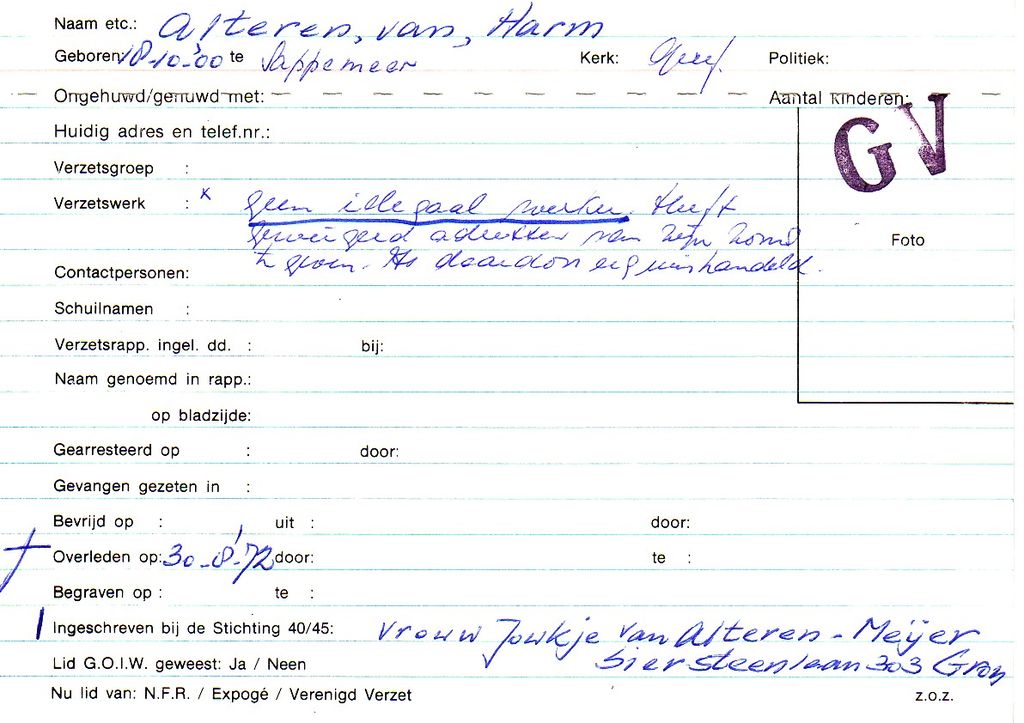 Naam etc.: Alteren, van, Harm
Geboren 18-10-'00 te Sappemeer Kerk: Geref. Politiek:
Ongehuwd/gehuwd met: Aantal kinderen:
GV
Huidig adres en telef.nr.:
Verzetsgroep :
Verzetswerk : x geen illegaal werker. Heeft
geweigerd adressen van zijn zoons
Foto
te geven. Is daardoor erg mishandeld.
Contactpersonen:
Schuilnamen :
Verzetsrapp. ingel. dd. : bij:
Naam genoemd in rapp.:
op bladzijde:
Gearresteerd op : door:
Gevangen gezeten in :
Bevrijd op : uit : door:
Overleden op: 30-8-'72 door: te :
Begraven op : te :
Ingeschreven bij de Stichting 40/45: Vrouw Jowkje van Alteren - Meijer
Lid G.O.I.W. geweest: Ja / Neen Siersteenlaan 303 Gron
Nu lid van: N.F.R. / Expogé / Verenigd Verzet z.o.z.